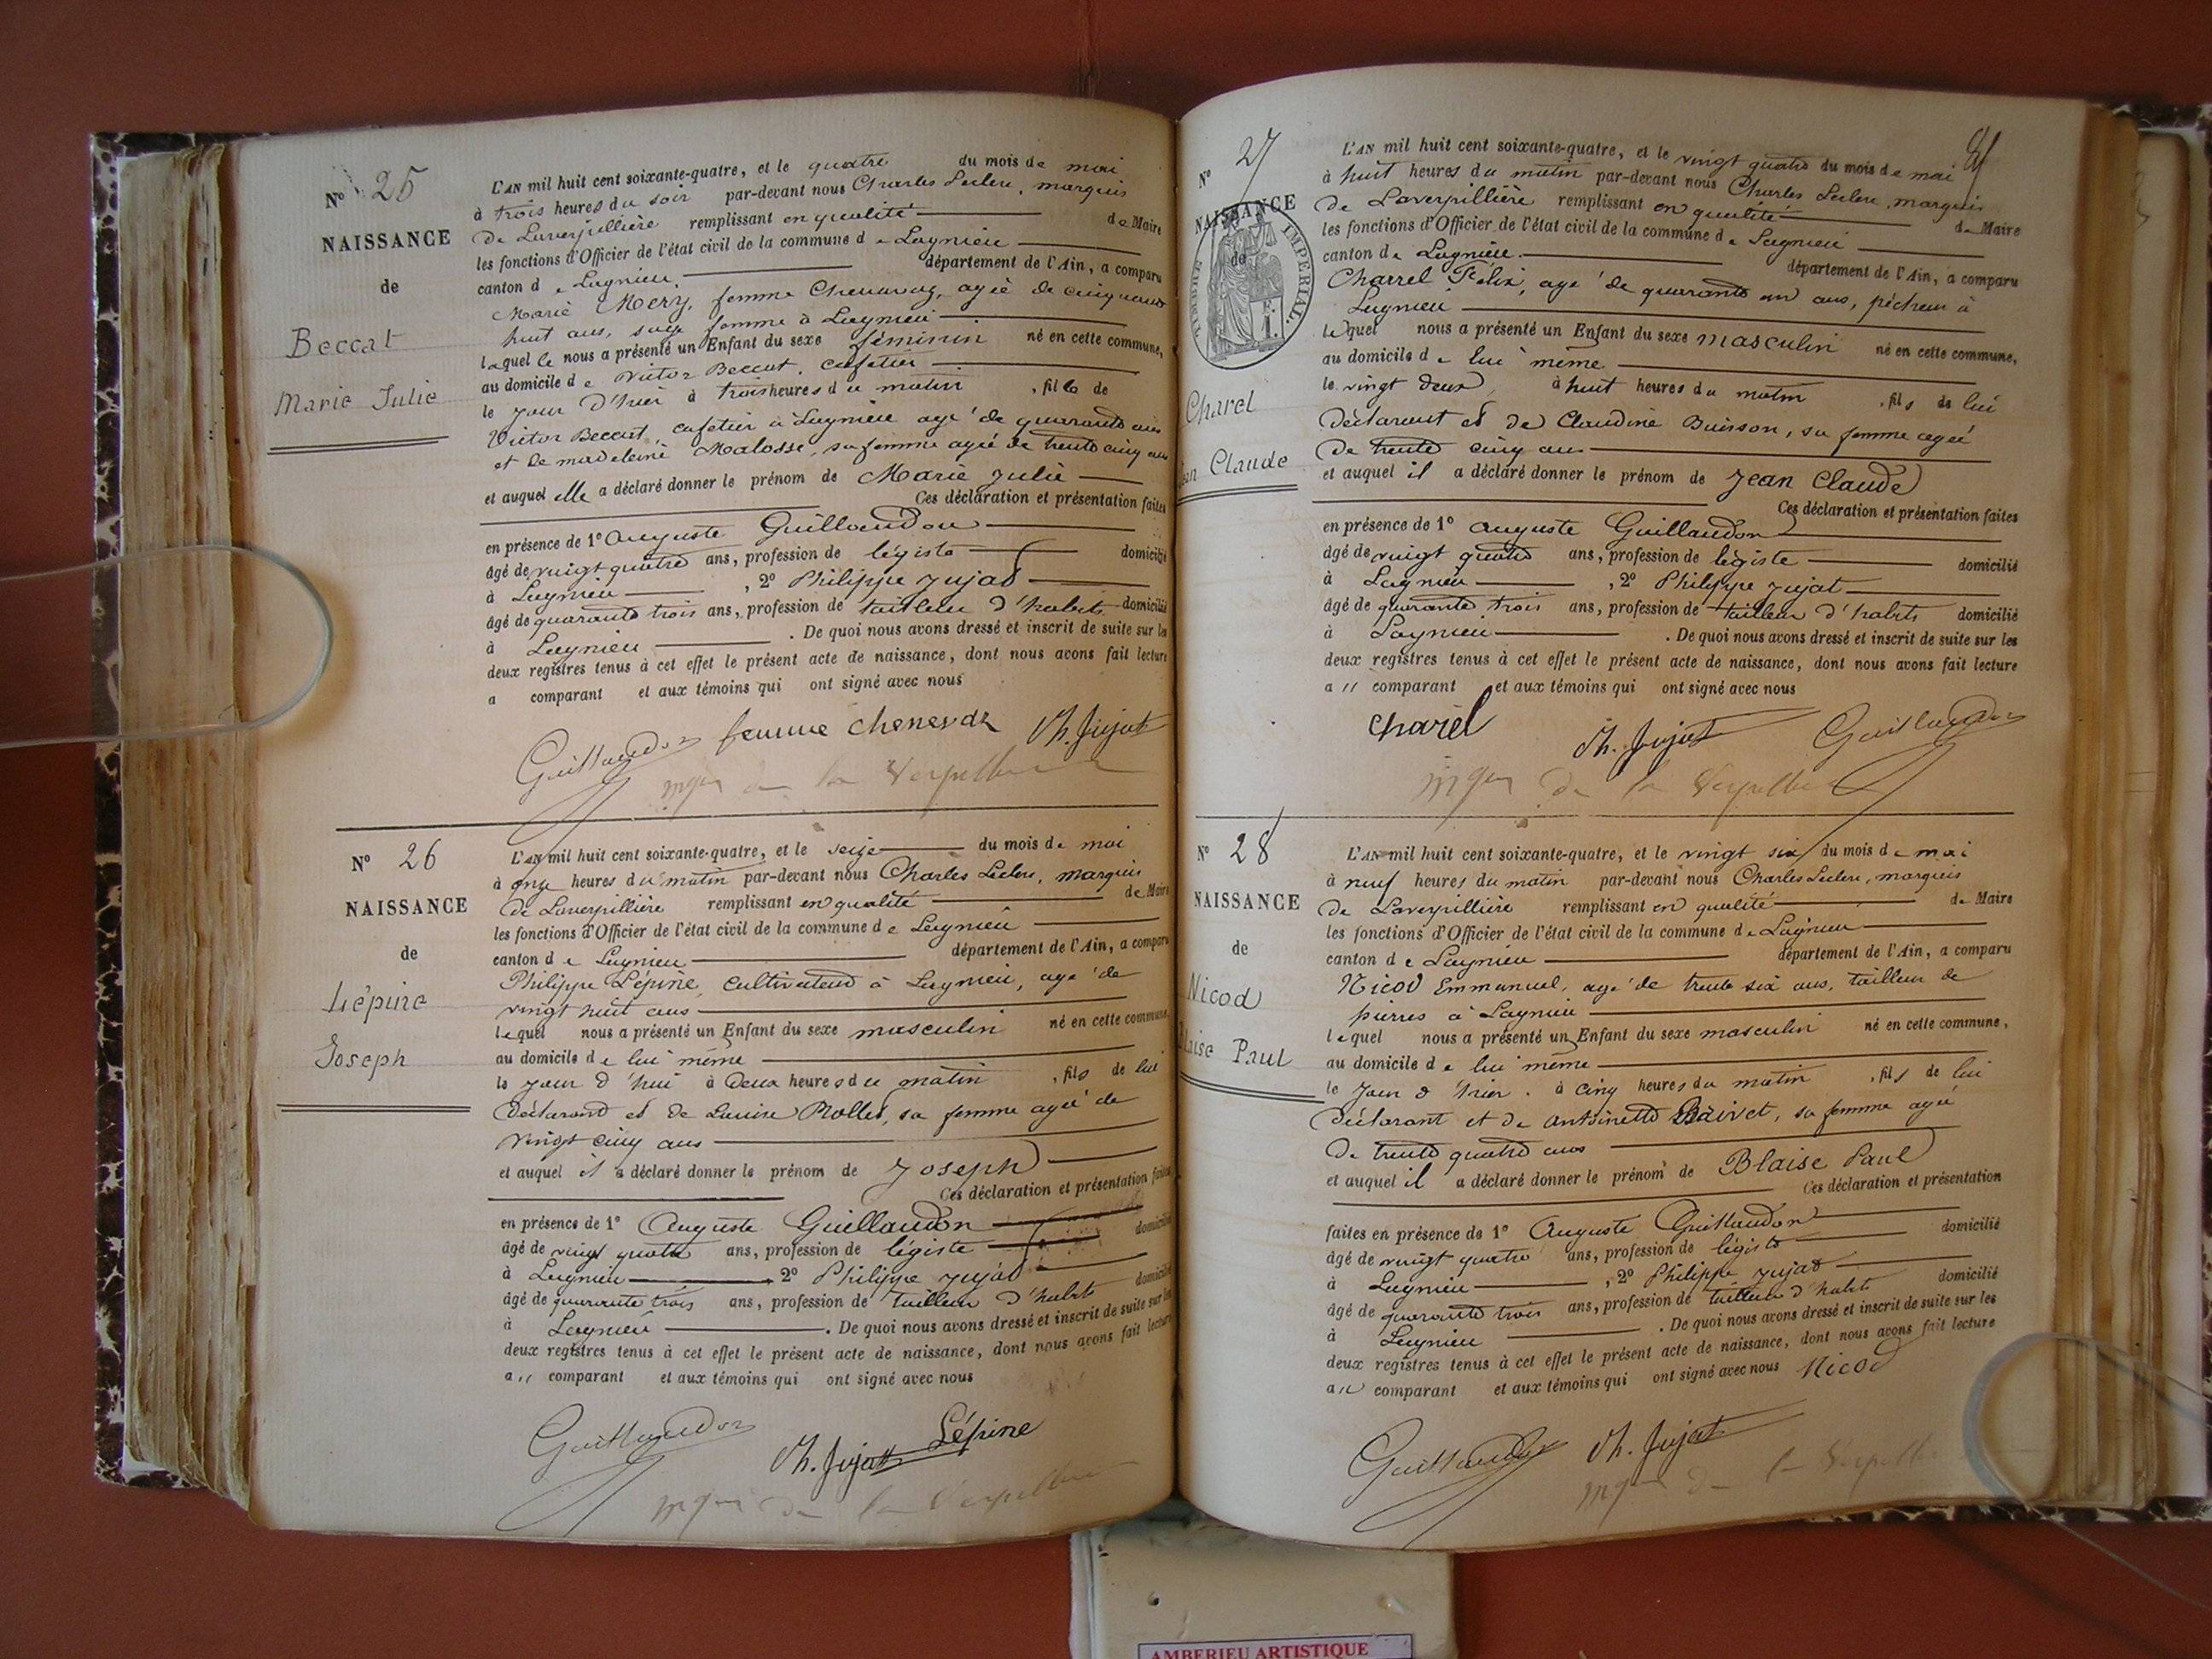 N° 25
NAISSANCE
de
Beccat
Marie Julie
L'AN mil huit cent soixante-quatre, et le quatre du mois de mai
à trois heures du soir par-devant nous Charles Leclerc, marquis
de Laverpillière remplissant en qualité de Maire
les fonctions d'Officier de l'état civil de la commune de Lagnieu
canton de Lagnieu département de l'Ain, a comparu
Marie Mery, femme Chenavaz, agée de cinquante
huit ans, sage femme à Lagnieu
laquelle nous a présenté un Enfant du sexe féminin né en cette commune,
au domicile de Victor Beccat, cafetier
le jour d'hier à trois heures du matin, fille de
Victor Beccat, cafetier à Lagnieu agé de quarante ans
et de madeleine Malosse, sa femme agée de trente cinq ans
et auquel elle a déclaré donner le prénom de Marie Julie
Ces déclaration et présentation faites
en présence de 1° Auguste Guillaudon
âgé de vingt quatre ans, profession de légiste domicilié
à Lagnieu, 2° Philippe Jujat
âgé de quarante trois ans, profession de tailleur d'habits domicilié
à Lagnieu. De quoi nous avons dressé et inscrit de suite sur les
deux registres tenus à cet effet le présent acte de naissance, dont nous avons fait lecture
a comparant et aux témoins qui ont signé avec nous
Guillaudon femme chenevaz Ph. Jujat
mquis de la Verpilliere
N° 26
NAISSANCE
de
Lépine
Joseph
L'AN mil huit cent soixante-quatre, et le seize du mois de mai
à onze heures du matin par-devant nous Charles Leclerc, marquis
de Laverpillière remplissant en qualité de Maire
les fonctions d'Officier de l'état civil de la commune de Lagnieu
canton de Lagnieu département de l'Ain, a comparu
Philippe Lépine, cultivateur à Lagnieu, agé de
vingt huit ans
lequel nous a présenté un Enfant du sexe masculin né en cette commune,
au domicile de lui même
le jour d'hui à deux heures du matin, fils de lui
déclarant et de Louise Rollet, sa femme agée de
vingt cinq ans
et auquel il a déclaré donner le prénom de Joseph
Ces déclaration et présentation faites
en présence de 1° Auguste Guillaudon
âgé de vingt quatre ans, profession de légiste domicilié
à Lagnieu, 2° Philippe Jujat
âgé de quarante trois ans, profession de tailleur d'habits domicilié
à Lagnieu. De quoi nous avons dressé et inscrit de suite sur les
deux registres tenus à cet effet le présent acte de naissance, dont nous avons fait lecture
a u comparant et aux témoins qui ont signé avec nous
Guillaudon Ph. Jujat Lépine
mquis de la Verpilliere
N° 27
NAISSANCE
de
TIMBRE IMPERIAL
Charel
Jean Claude
L'AN mil huit cent soixante-quatre, et le vingt quatre du mois de mai
à huit heures du matin par-devant nous Charles Leclerc, marquis
de Laverpillière remplissant en qualité de Maire
les fonctions d'Officier de l'état civil de la commune de Lagnieu
canton de Lagnieu département de l'Ain, a comparu
Charrel Félix, agé de quarante un ans, pêcheur à
Lagnieu
lequel nous a présenté un Enfant du sexe masculin né en cette commune,
au domicile de lui même
le vingt deux, à huit heures du matin, fils de lui
déclarant et de Claudine Buisson, sa femme agée
de trente cinq ans
et auquel il a déclaré donner le prénom de Jean Claude
Ces déclaration et présentation faites
en présence de 1° Auguste Guillaudon
âgé de vingt quatre ans, profession de légiste domicilié
à Lagnieu, 2° Philippe Jujat
âgé de quarante trois ans, profession de tailleur d'habits domicilié
à Lagnieu. De quoi nous avons dressé et inscrit de suite sur les
deux registres tenus à cet effet le présent acte de naissance, dont nous avons fait lecture
a u comparant et aux témoins qui ont signé avec nous
Charel Ph. Jujat Guillaudon
mquis de la Verpilliere
N° 28
NAISSANCE
de
Nicod
Blaise Paul
L'AN mil huit cent soixante-quatre, et le vingt six du mois de mai
à neuf heures du matin par-devant nous Charles Leclerc, marquis
de Laverpillière remplissant en qualité de Maire
les fonctions d'Officier de l'état civil de la commune de Lagnieu
canton de Lagnieu département de l'Ain, a comparu
Nicod Emmanuel, agé de trente six ans, tailleur de
pierres à Lagnieu
lequel nous a présenté un Enfant du sexe masculin né en cette commune,
au domicile de lui même
le jour d'hier, à cinq heures du matin, fils de lui
déclarant et de Antoinette Baivet, sa femme agée
de trente quatre ans
et auquel il a déclaré donner le prénom de Blaise Paul
Ces déclaration et présentation
faites en présence de 1° Auguste Guillaudon domicilié
âgé de vingt quatre ans, profession de légiste
à Lagnieu, 2° Philippe Jujat
âgé de quarante trois ans, profession de tailleur d'habits domicilié
à Lagnieu. De quoi nous avons dressé et inscrit de suite sur les
deux registres tenus à cet effet le présent acte de naissance, dont nous avons fait lecture
a u comparant et aux témoins qui ont signé avec nous Nicod
Guillaudon Ph. Jujat
mquis de la Verpilliere
AMBERIEU ARTISTIQUE